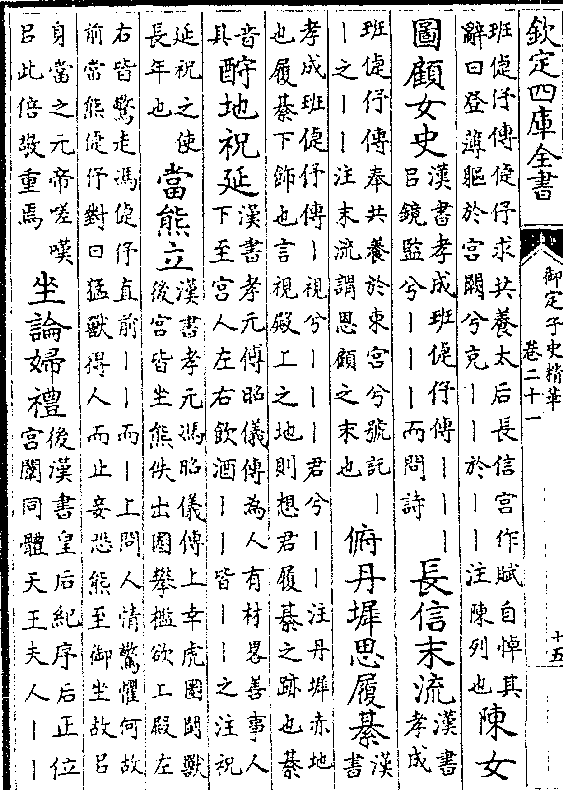 欽定四庫全書
御定子史精華
卷二十一
十五
班倢伃傳倢伃求共養太后長信宫作賦自悼其
辭曰登薄軀於宫闕兮充丨丨於丨丨注陳列也
陳女
圖顧女史
漢書孝成班倢伃傳丨丨丨丨
㠯鏡監兮丨丨丨而問詩
長信末流
漢書
孝成
班倢伃傳奉共養於東宫兮號託丨
丨之丨丨注末流謂恩顧之末也
俯丹墀思履綦
漢
書
孝成班倢伃傳丨視兮丨丨丨君兮丨丨注丹墀赤地
也履綦下飾也言視殿上之地則想君履綦之跡也綦
音
具
酹地祝延
漢書孝元傅昭儀傳為人有材畧善事人
下至宫人左右飲酒丨丨皆丨丨之注祝
延祝之使
長年也
當熊立
漢書孝元馮昭儀傳上幸虎圈鬬獸
後宫皆坐熊佚出圈攀檻欲上殿左
右皆驚走馮倢伃直前丨丨而丨上問人情驚懼何故
前當熊倢伃對曰猛獸得人而止妾恐熊至御坐故㠯
身當之元帝嗟嘆
㠯此倍敬重焉
坐論婦禮
後漢書皇后紀序后正位
宫闈同體天王夫人丨丨